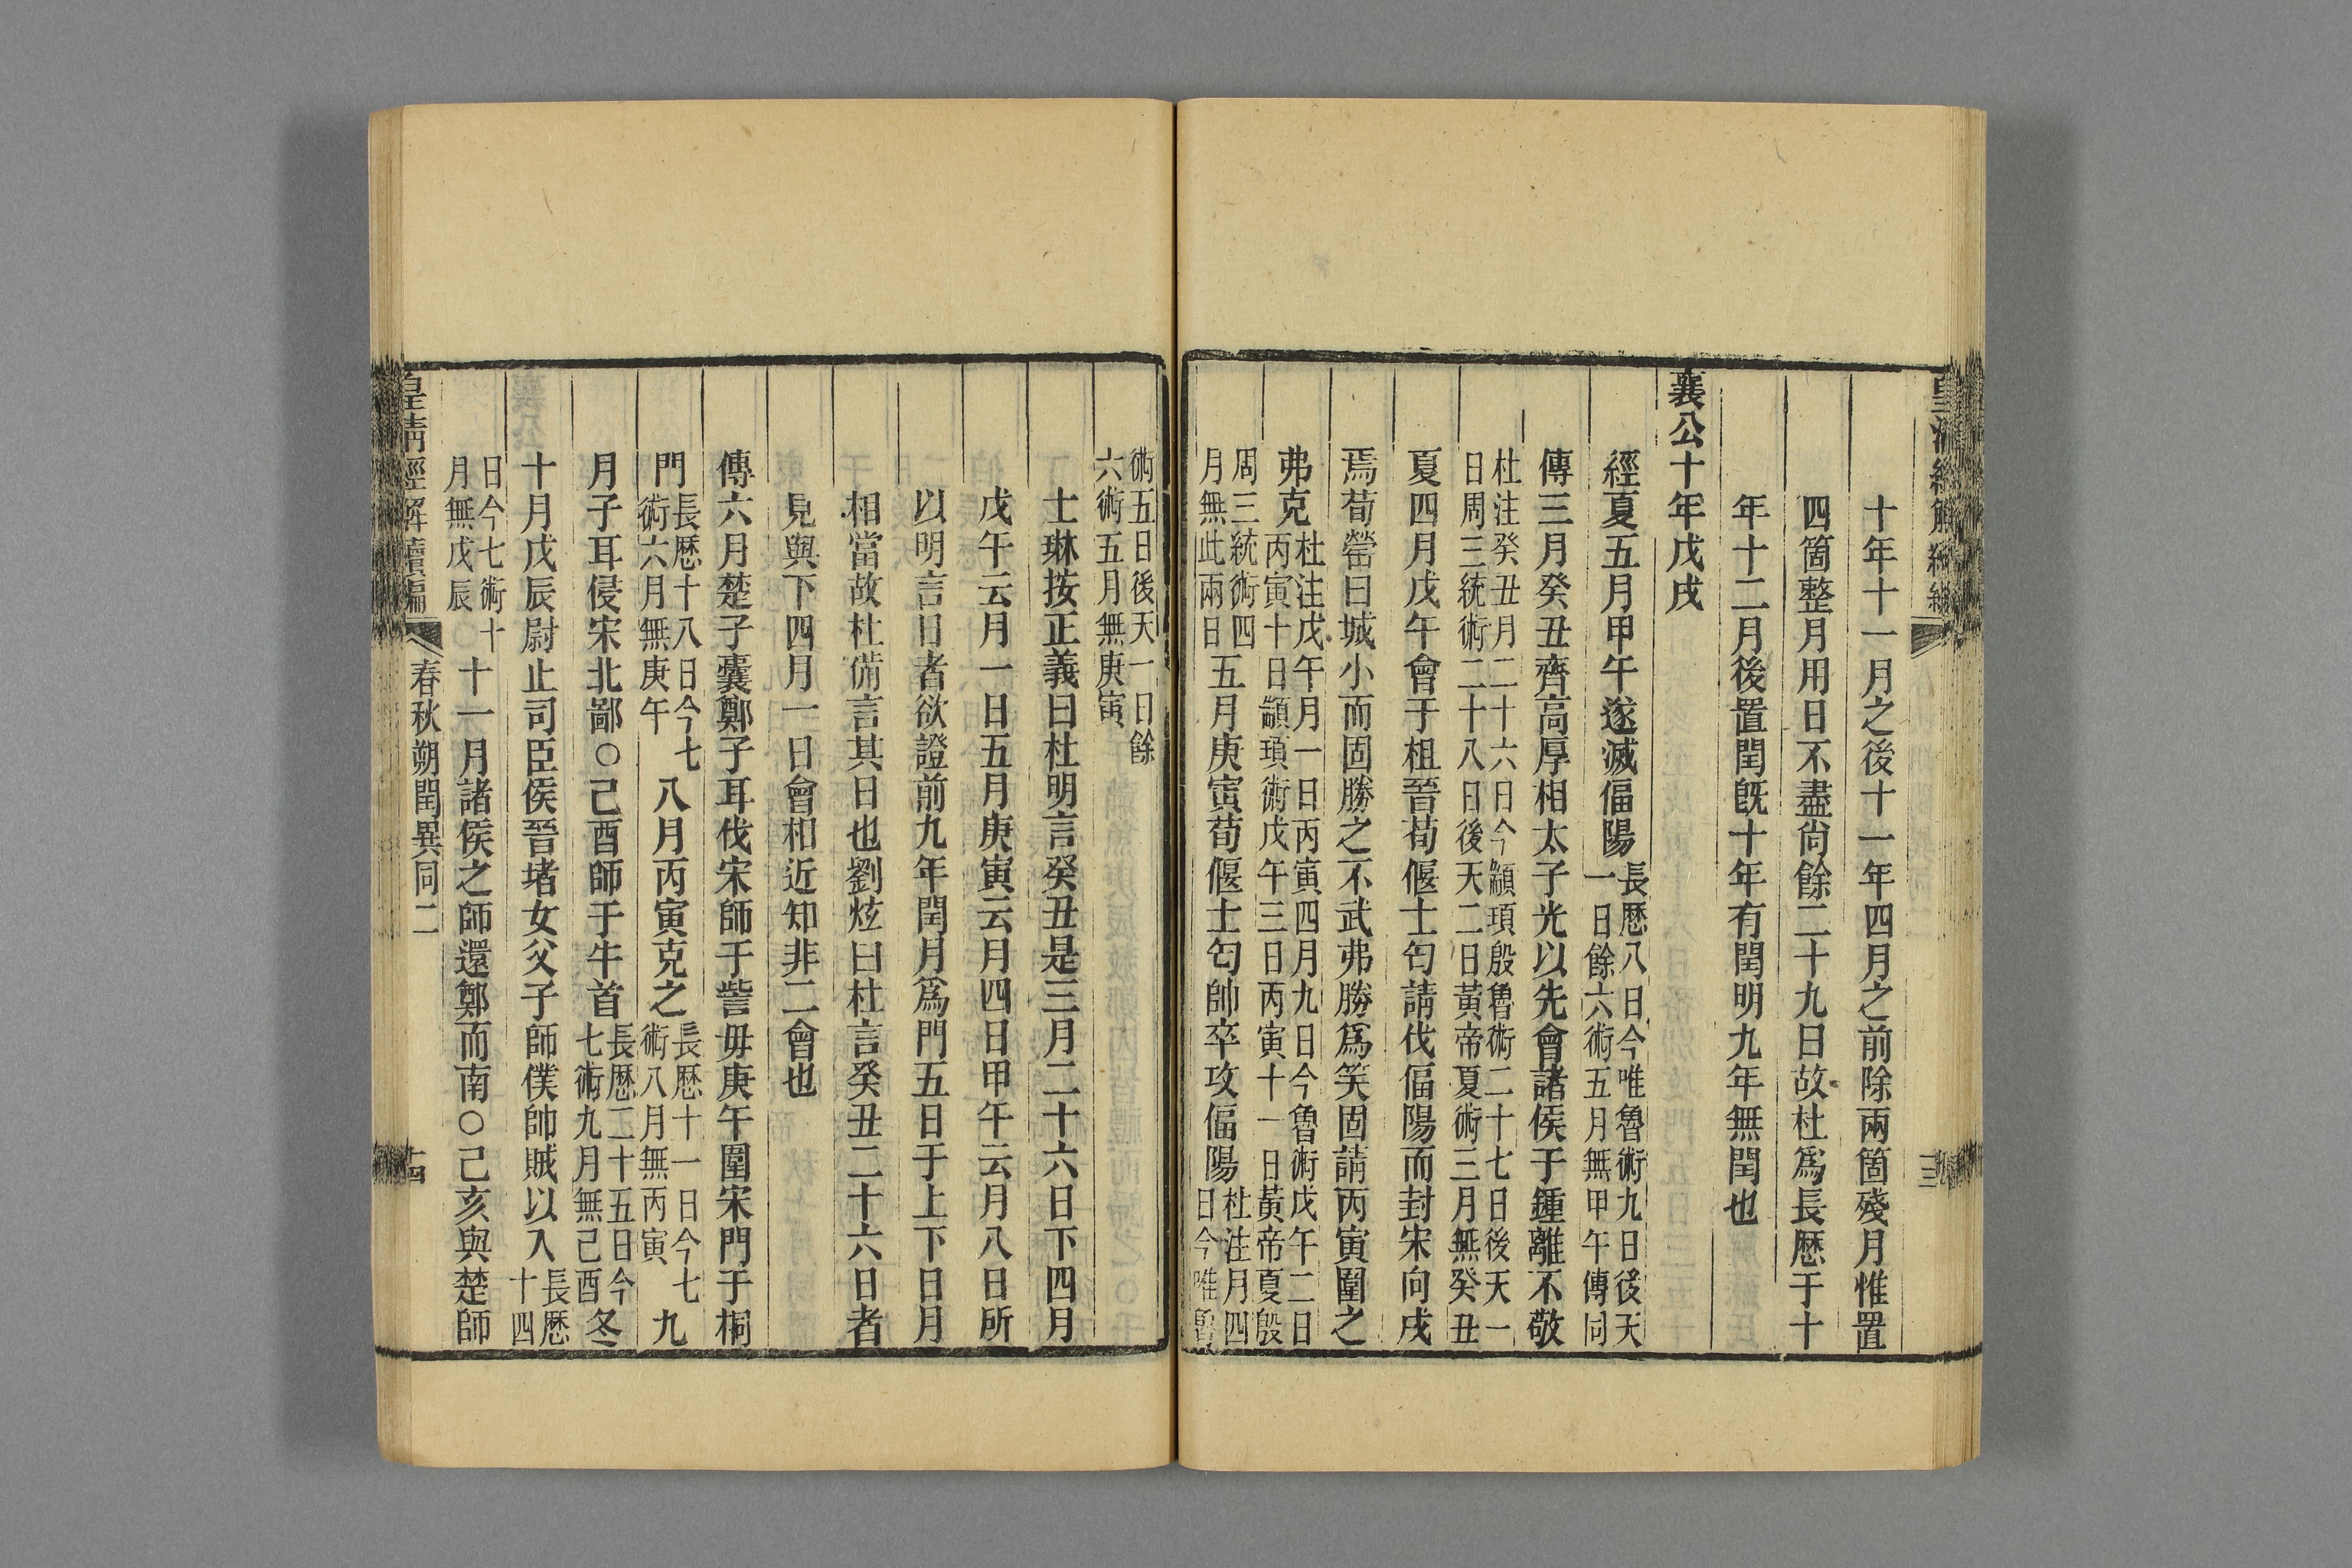 皇清經解續編
十年十一月之後十一年四月之前除兩箇殘月惟置
四箇整月用日不盡尚餘二十九日故杜爲長厯于十
年十二月後置閏旣十年有閏明九年無閏也
襄公十年戊戌
經夏五月甲午遂滅偪陽長厯八日今唯魯術九日後天一日餘六術五月無甲午傳同
傳三月癸丑齊高厚相太子光以先會諸侯于鍾離不敬
杜注癸丑月二十六日今顓頊殷魯術二十七日後天一日周三統術二十八日後天二日黃帝夏術三月無癸丑
夏四月戊午會于柤晉荀偃士匄請伐偪陽而封宋向戌
焉荀罃曰城小而固勝之不武弗勝爲笑固請丙寅圍之
弗克杜注戊午月一日丙寅四月九日今魯術戊午二日丙寅十日顓頊術戊午三日丙寅十一日黃帝夏殷
周三統術四月無此兩日五月庚寅荀偃士匄帥卒攻偪陽杜注月四日今唯魯
術五日後天一日餘六術五月無庚寅
士琳按正義曰杜明言癸丑是三月二十六日下四月
戊午云月一日五月庚寅云月四日甲午云月八日所
以明言日者欲證前九年閏月爲門五日于上下日月
相當故杜備言其日也劉炫曰杜言癸丑二十六日者
見與下四月一日會相近知非二會也
傳六月楚子囊鄭子耳伐宋師于訾毋庚午圍宋門于桐
門長厯十八日今七術六月無庚午八月丙寅克之長厯十一日今七術八月無丙寅九
月子耳侵宋北鄙○己酉師于牛首長厯二十五日今七術九月無己酉冬
十月戊辰尉止司臣侯晉堵女父子師僕帥賊以入長厯十四
日今七術十月無戊辰十一月諸侯之師還鄭而南○己亥與楚師
皇清經解續編 春秋朔閏異同二 十四